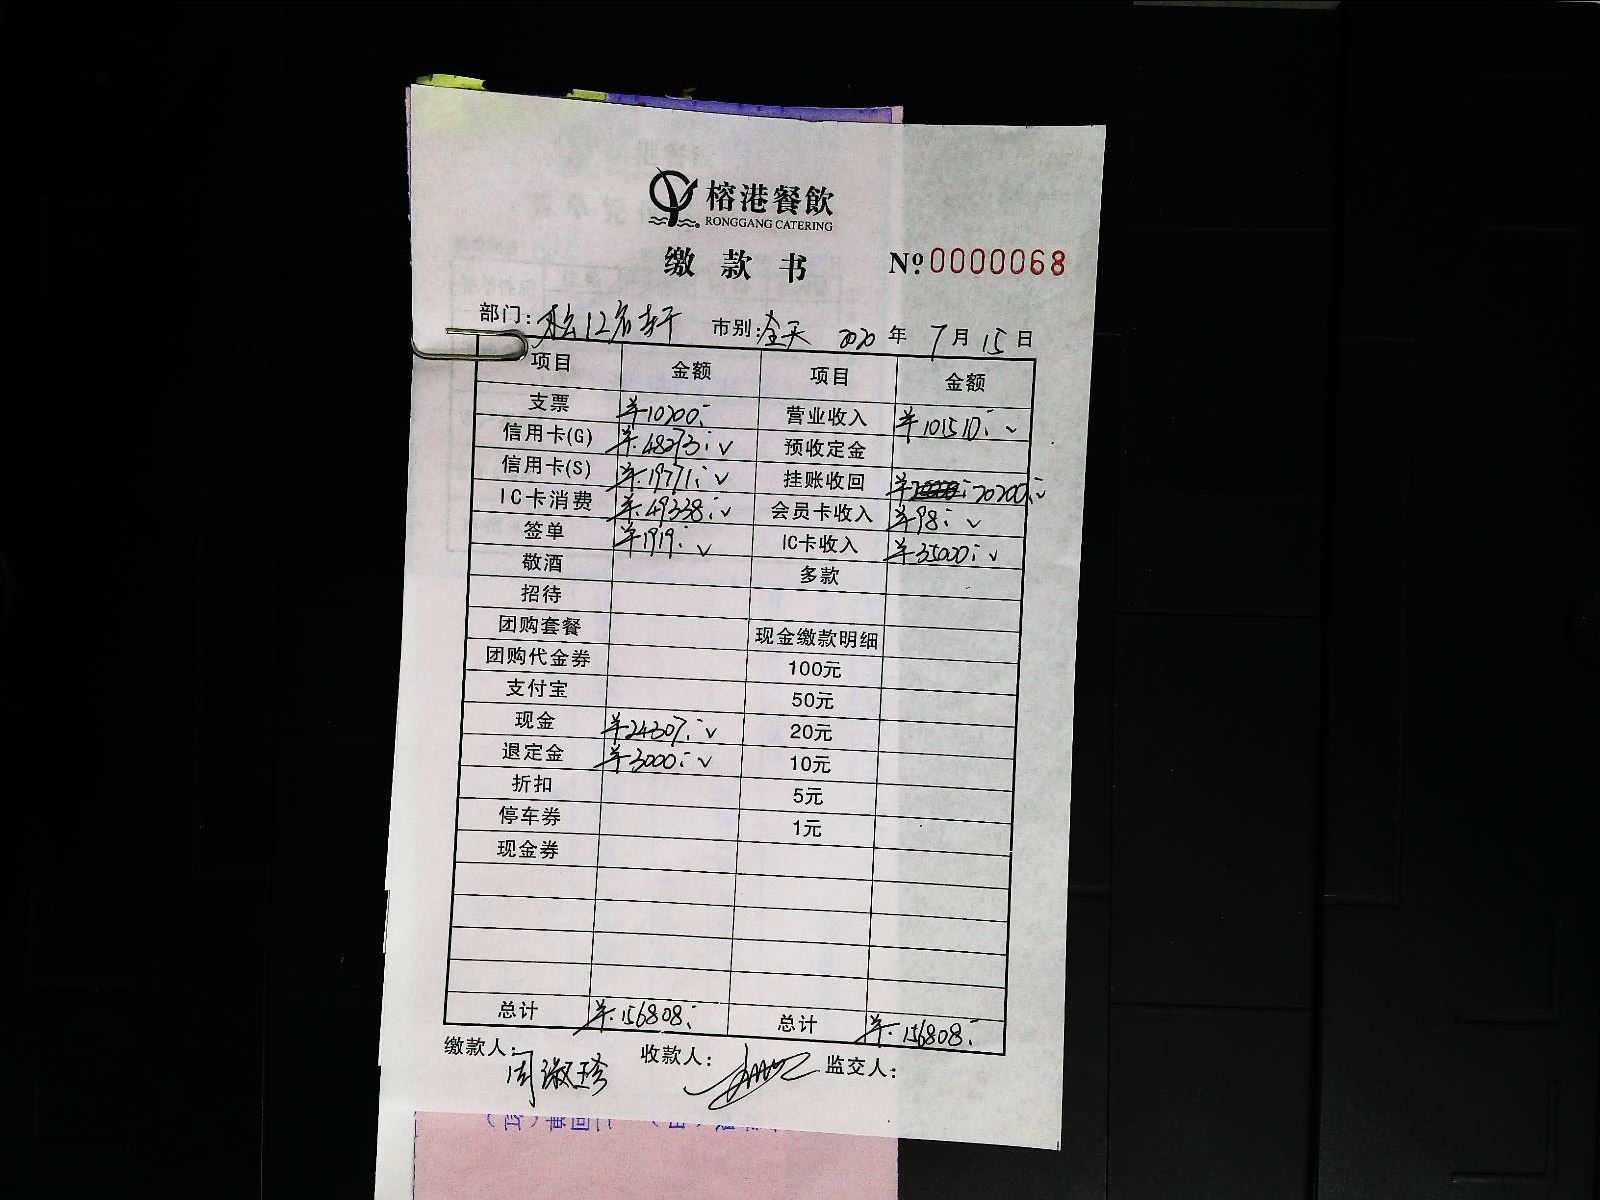 榕港餐飲
RONGGANG CATERING
缴款书 Nº 0000068
部门: 市别: 全天 2020 年 7 月 15 日
项目 金额 项目 金额
支票 ¥10200.- 营业收入 ¥101510.- ✓
信用卡(G) ¥48273.- ✓ 预收定金
信用卡(S) ¥19771.- ✓ 挂账收回 ¥ 20200.- ✓
IC卡消费 ¥49338.- ✓ 会员卡收入 ¥98.- ✓
签单 ¥1919.- ✓ IC卡收入 ¥35000.- ✓
敬酒 多款
招待
团购套餐 现金缴款明细
团购代金券 100元
支付宝 50元
现金 ¥24307.- ✓ 20元
退定金 ¥3000.- ✓ 10元
折扣 5元
停车券 1元
现金券
总计 ¥156808.- 总计 ¥156808.-
缴款人: 周淑珍 收款人: 监交人: